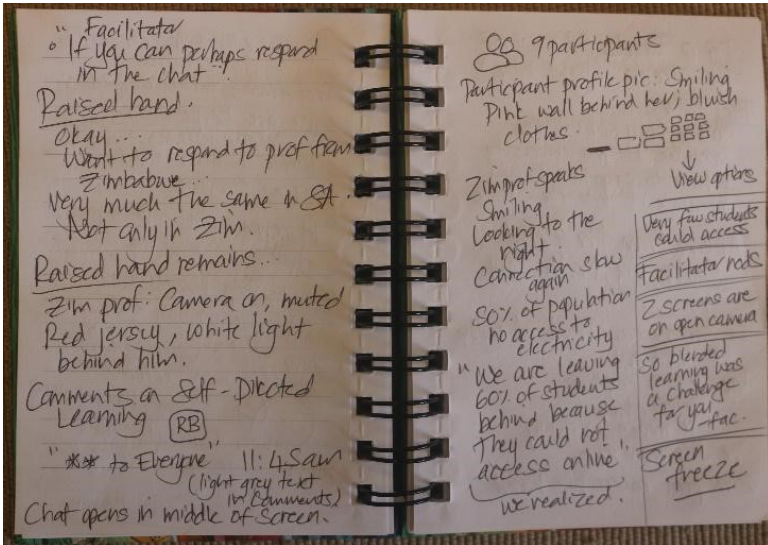 " Facilitator
° If you can perhaps respond
in the chat".
Raised hand.
Okay...
Want to respond to prof from
Zimbabwe...
very much the same in SA.
Not only in Zim.
Raised hand remains...
Zim prof: Camera on, muted
Red jersey, white light
behind him.
Comments on Self-Directed
Learning RB
"** to Everyone" 11:45am
(light grey text
in Comments)
Chat opens in middle of Screen.
9 participants
Participant profile pic: Smiling
Pink wall behind her; bluish
clothes.
View options
Zim prof speaks
Smiling
Looking to the
right.
Connection slow
again
50% of population
no access to
electricity
"We are leaving
60% of students
behind because
they could not
access online"
we realized.
Very few students
could access
Facilitator nods
2 screens are
on open camera
So blended
learning was
a challenge
for you
-fac.
Screen
freeze